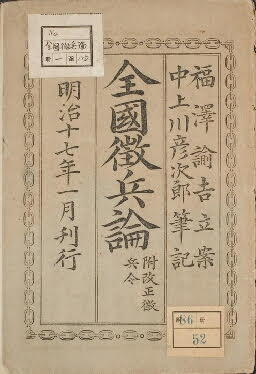 福澤諭吉立案
中上川彦次郎筆記
全國徴兵論
附改正徴
兵令
明治十七年一月刊行
全國徴兵論
52